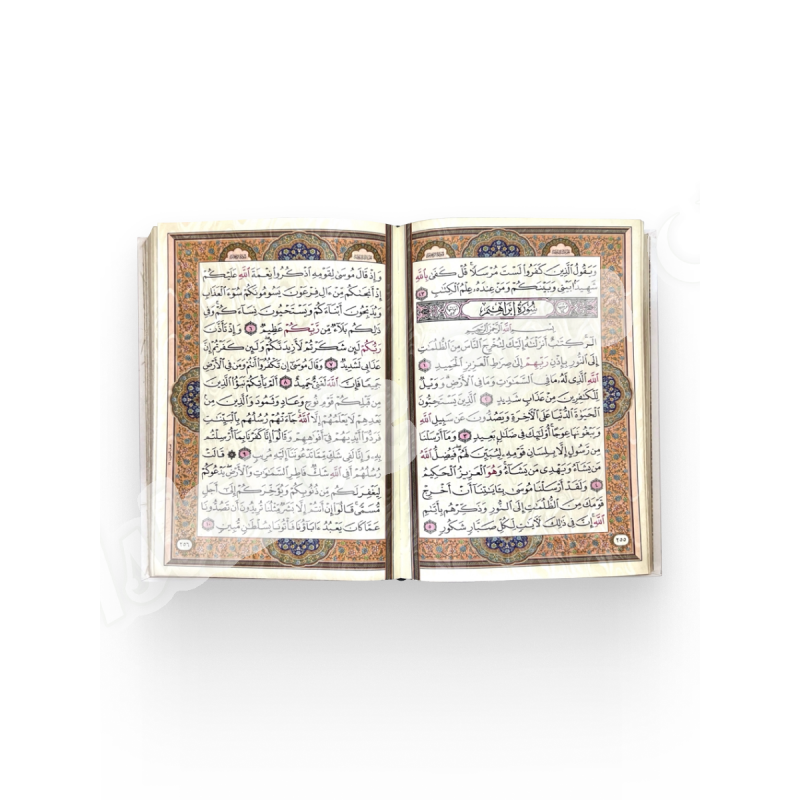 وَيَقُولُ الَّذِينَ كَفَرُوا لَسْتَ مُرْسَلًا قُلْ كَفَىٰ بِاللَّهِ
شَهِيدًا بَيْنِي وَبَيْنَكُمْ وَمَنْ عِندَهُ عِلْمُ الْكِتَابِ ٤٣
سُورَةُ إِبْرَاهِيمَ
بِسْمِ اللَّهِ الرَّحْمَٰنِ الرَّحِيمِ
الٓر كِتَابٌ أَنزَلْنَاهُ إِلَيْكَ لِتُخْرِجَ النَّاسَ مِنَ الظُّلُمَاتِ
إِلَى النُّورِ بِإِذْنِ رَبِّهِمْ إِلَىٰ صِرَاطِ الْعَزِيزِ الْحَمِيدِ ١
اللَّهِ الَّذِي لَهُ مَا فِي السَّمَاوَاتِ وَمَا فِي الْأَرْضِ وَوَيْلٌ
لِّلْكَافِرِينَ مِنْ عَذَابٍ شَدِيدٍ ٢ الَّذِينَ يَسْتَحِبُّونَ
الْحَيَاةَ الدُّنْيَا عَلَى الْآخِرَةِ وَيَصُدُّونَ عَن سَبِيلِ اللَّهِ
وَيَبْغُونَهَا عِوَجًا أُولَٰئِكَ فِي ضَلَالٍ بَعِيدٍ ٣ وَمَا أَرْسَلْنَا
مِن رَّسُولٍ إِلَّا بِلِسَانِ قَوْمِهِ لِيُبَيِّنَ لَهُمْ فَيُضِلُّ اللَّهُ
مَن يَشَاءُ وَيَهْدِي مَن يَشَاءُ وَهُوَ الْعَزِيزُ الْحَكِيمُ
٤ وَلَقَدْ أَرْسَلْنَا مُوسَىٰ بِآيَاتِنَا أَنْ أَخْرِجْ
قَوْمَكَ مِنَ الظُّلُمَاتِ إِلَى النُّورِ وَذَكِّرْهُم بِأَيَّامِ
اللَّهِ إِنَّ فِي ذَٰلِكَ لَآيَاتٍ لِّكُلِّ صَبَّارٍ شَكُورٍ ٥
٢٥٥
وَإِذْ قَالَ مُوسَىٰ لِقَوْمِهِ اذْكُرُوا نِعْمَةَ اللَّهِ عَلَيْكُمْ
إِذْ أَنجَاكُم مِّنْ آلِ فِرْعَوْنَ يَسُومُونَكُمْ سُوءَ الْعَذَابِ
وَيُذَبِّحُونَ أَبْنَاءَكُمْ وَيَسْتَحْيُونَ نِسَاءَكُمْ وَفِي
ذَٰلِكُم بَلَاءٌ مِّن رَّبِّكُمْ عَظِيمٌ ٦ وَإِذْ تَأَذَّنَ
رَبُّكُمْ لَئِن شَكَرْتُمْ لَأَزِيدَنَّكُمْ وَلَئِن كَفَرْتُمْ إِنَّ
عَذَابِي لَشَدِيدٌ ٧ وَقَالَ مُوسَىٰ إِن تَكْفُرُوا أَنتُمْ وَمَن فِي الْأَرْضِ
جَمِيعًا فَإِنَّ اللَّهَ لَغَنِيٌّ حَمِيدٌ ٨ أَلَمْ يَأْتِكُمْ نَبَأُ الَّذِينَ
مِن قَبْلِكُمْ قَوْمِ نُوحٍ وَعَادٍ وَثَمُودَ وَالَّذِينَ مِن
بَعْدِهِمْ لَا يَعْلَمُهُمْ إِلَّا اللَّهُ جَاءَتْهُمْ رُسُلُهُم بِالْبَيِّنَاتِ
فَرَدُّوا أَيْدِيَهُمْ فِي أَفْوَاهِهِمْ وَقَالُوا إِنَّا كَفَرْنَا بِمَا أُرْسِلْتُم
بِهِ وَإِنَّا لَفِي شَكٍّ مِّمَّا تَدْعُونَنَا إِلَيْهِ مُرِيبٍ ٩ ۞ قَالَتْ
رُسُلُهُمْ أَفِي اللَّهِ شَكٌّ فَاطِرِ السَّمَاوَاتِ وَالْأَرْضِ يَدْعُوكُمْ
لِيَغْفِرَ لَكُم مِّن ذُنُوبِكُمْ وَيُؤَخِّرَكُمْ إِلَىٰ أَجَلٍ
مُّسَمًّى قَالُوا إِنْ أَنتُمْ إِلَّا بَشَرٌ مِّثْلُنَا تُرِيدُونَ أَن تَصُدُّونَا
عَمَّا كَانَ يَعْبُدُ آبَاؤُنَا فَأْتُونَا بِسُلْطَانٍ مُّبِينٍ ١٠
٢٥٦